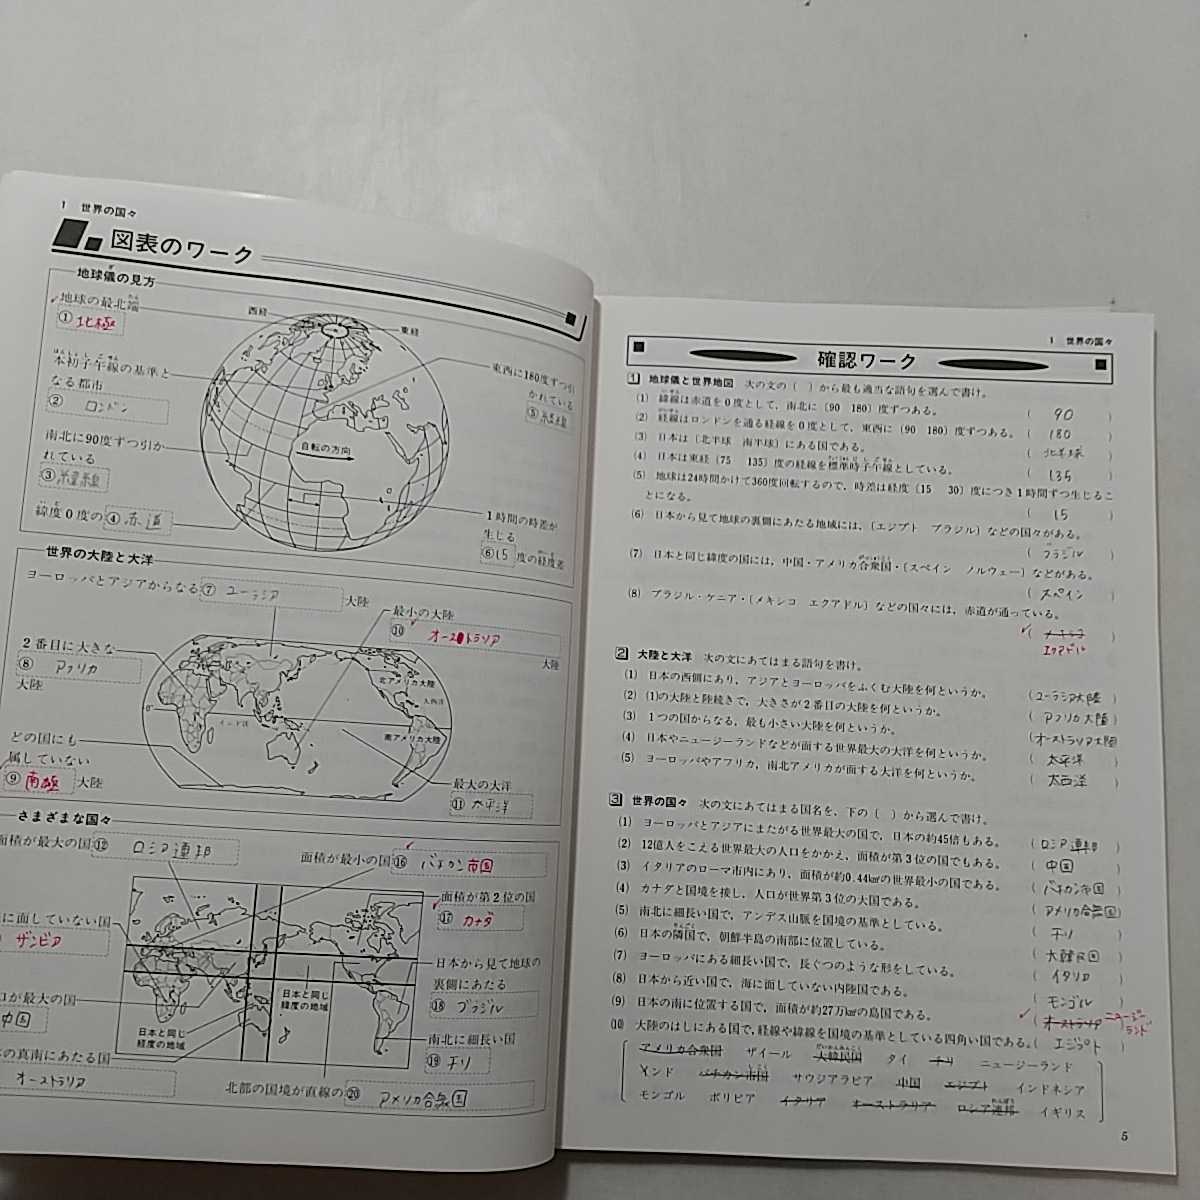 1 世界の国々
図表のワーク
地球儀の見方
地球の最北端
① 北極
西経
東経
本初子午線の基準と
なる都市
② ロンドン
東西に180度ずつ引
かれている
⑤ 経線
南北に90度ずつ引か
れている
③ 緯線
自転の方向
緯度0度の④ 赤道
1時間の時差が
生じる
⑥ 15 度の経度差
世界の大陸と大洋
ヨーロッパとアジアからなる⑦ ユーラシア 大陸
最小の大陸
⑩ オーストラリア 大陸
2番目に大きな
⑧ アフリカ
大陸
北アメリカ大陸
大西洋
0°
インド洋
南アメリカ大陸
どの国にも
属していない
⑨ 南極 大陸
最大の大洋
⑪ 太平洋
さまざまな国々
面積が最大の国⑫ ロシア連邦
面積が最小の国⑯ バチカン市国
面積が第2位の国
⑰ カナダ
に面していない国
ザンビア
日本から見て地球の
裏側にあたる
⑱ ブラジル
日本と同じ
緯度の地域
口が最大の国
中国
日本と同じ
経度の地域
南北に細長い国
⑲ チリ
の真南にあたる国
オーストラリア
北部の国境が直線の⑳ アメリカ合衆国
1 世界の国々
確認ワーク
1 地球儀と世界地図 次の文の( )から最も適当な語句を選んで書け。
(1) 緯線は赤道を0度として,南北に〔90 180〕度ずつある。 ( 90 )
(2) 経線はロンドンを通る経線を0度として,東西に〔90 180〕度ずつある。 ( 180 )
(3) 日本は〔北半球 南半球〕にある国である。 ( 北半球 )
(4) 日本は東経〔75 135〕度の経線を標準時子午線としている。 ( 135 )
(5) 地球は24時間かけて360度回転するので,時差は経度〔15 30〕度につき1時間ずつ生じるこ
とになる。 ( 15 )
(6) 日本から見て地球の裏側にあたる地域には,〔エジプト ブラジル〕などの国々がある。
( ブラジル )
(7) 日本と同じ緯度の国には,中国・アメリカ合衆国・〔スペイン ノルウェー〕などがある。
( スペイン )
(8) ブラジル・ケニア・〔メキシコ エクアドル〕などの国々には,赤道が通っている。
( メキシコ )
エクアドル
2 大陸と大洋 次の文にあてはまる語句を書け。
(1) 日本の西側にあり,アジアとヨーロッパをふくむ大陸を何というか。 (ユーラシア大陸 )
(2) (1)の大陸と陸続きで,大きさが2番目の大陸を何というか。 ( アフリカ大陸 )
(3) 1つの国からなる,最も小さい大陸を何というか。 (オーストラリア大陸
(4) 日本やニュージーランドなどが面する世界最大の大洋を何というか。 ( 太平洋 )
(5) ヨーロッパやアフリカ,南北アメリカが面する大洋を何というか。 ( 大西洋 )
3 世界の国々 次の文にあてはまる国名を,下の( )から選んで書け。
(1) ヨーロッパとアジアにまたがる世界最大の国で,日本の約45倍もある。 ( ロシア連邦 )
(2) 12億人をこえる世界最大の人口をかかえ,面積が第3位の国でもある。 ( 中国 )
(3) イタリアのローマ市内にあり,面積が約0.44km²の世界最小の国である。 ( バチカン市国 )
(4) カナダと国境を接し,人口が世界第3位の大国である。 ( アメリカ合衆国)
(5) 南北に細長い国で,アンデス山脈を国境の基準としている。 ( チリ )
(6) 日本の隣国で,朝鮮半島の南部に位置している。 ( 大韓民国 )
(7) ヨーロッパにある細長い国で,長ぐつのような形をしている。 ( イタリア )
(8) 日本から近い国で,海に面していない内陸国である。 ( モンゴル )
(9) 日本の南に位置する国で,面積が約27万km²の島国である。 ( オーストラリア ) ニュージーランド
(10) 大陸のはしにある国で,経線や緯線を国境の基準としている四角い国である。( エジプト )
アメリカ合衆国 ザイール 大韓民国 タイ チリ ニュージーランド
インド バチカン市国 サウジアラビア 中国 エジプト インドネシア
モンゴル ボリビア イタリア オーストラリア ロシア連邦 イギリス
5